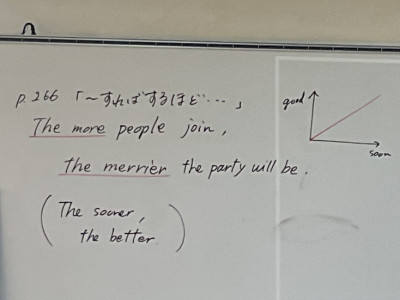 p.266 「〜すればするほど…」
The more people join,
the merrier the party will be.
(The sooner,
the better)
good
soon